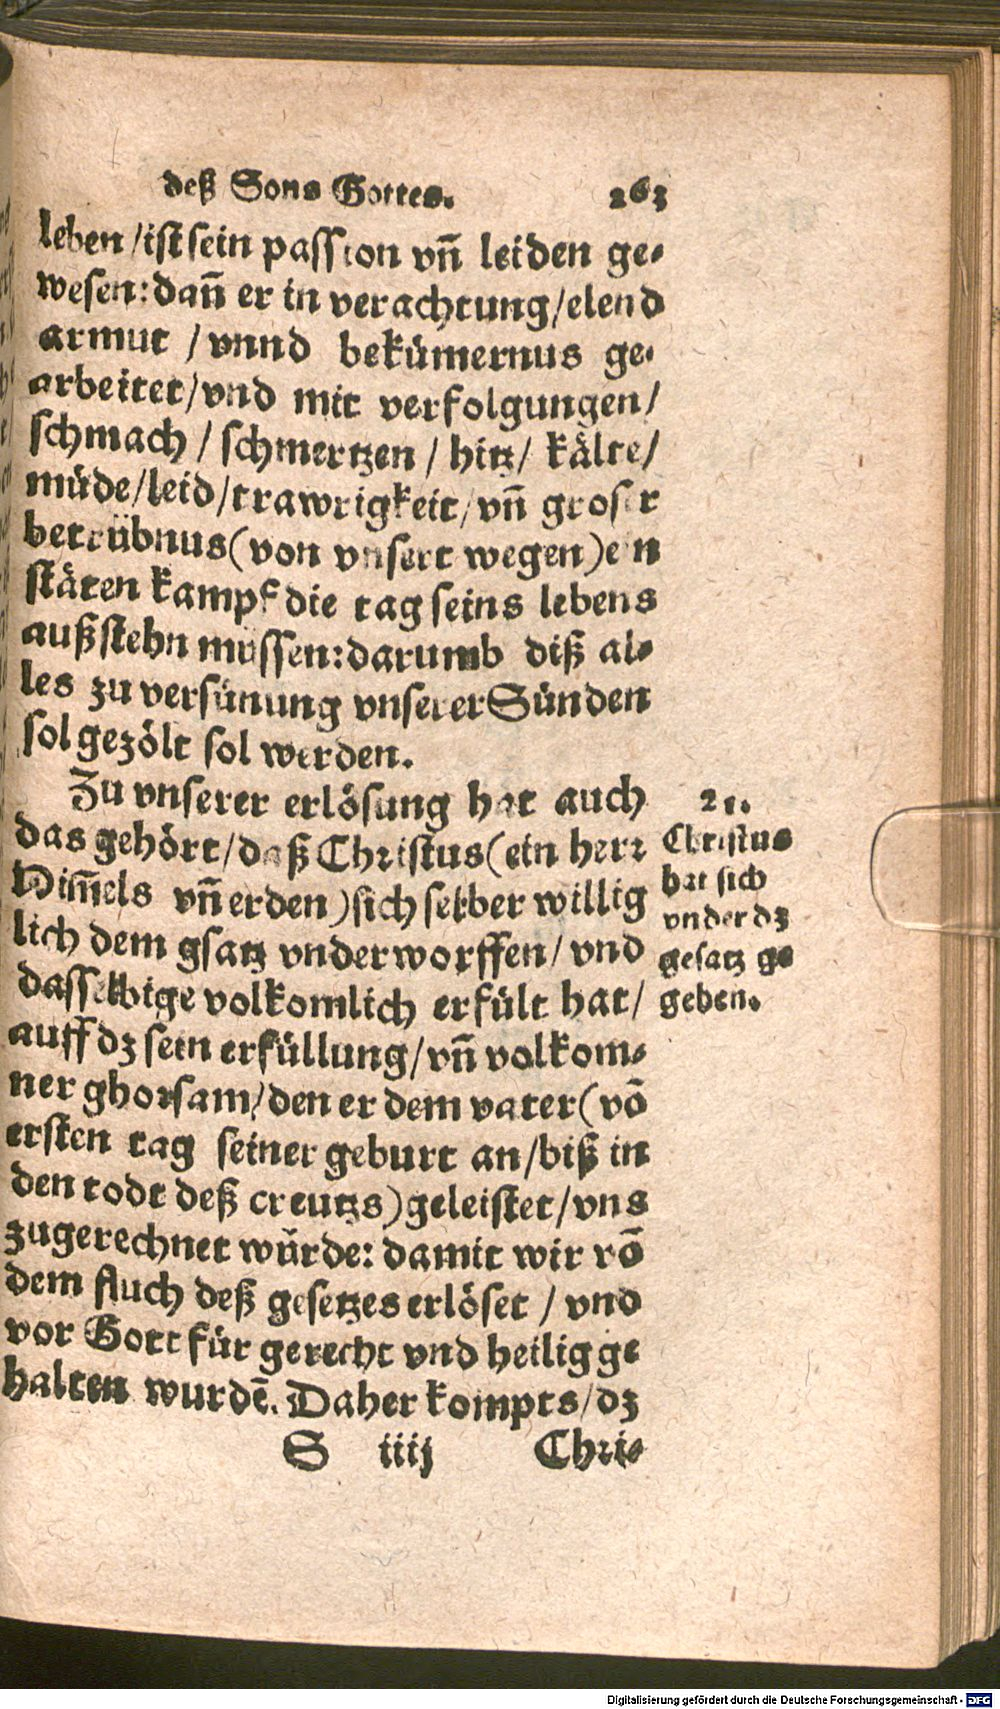 deß Sons Gottes. 263
leben / ist sein passion vñ leiden ge⸗
wesen: dañ er in verachtung / elend
armut / vnnd bekümernus ge⸗
arbeitet / vnd mit verfolgungen /
schmach / schmertzen / hitz / kälte /
müde / leid / trawrigkeit / vñ groser
betrübnus (von vnsert wegen) ein
stäten kampf die tag seins lebens
außstehn müssen: darumb diß al⸗
les zu versünung vnserer Sünden
sol gezölt sol werden.
Zu vnserer erlösung hat auch
das gehört / daß Christus (ein herr
Him̃els vñ erden) sich selber willig
lich dem gsatz vnderworffen / vnd
dasselbige volkomlich erfült hat /
auff dz sein erfüllung / vñ volkom⸗
ner ghorsam / den er dem vater (võ
ersten tag seiner geburt an / biß in
den todt deß creutzs) geleistet / vns
zugerechnet würde: damit wir võ
dem fluch deß gesetzes erlöset / vnd
vor Gott für gerecht vnd heilig ge
halten wurdẽ. Daher kompts / dz
S iiij Chri⸗
21.
Christus
hat sich
vnder dz
gesatz ge
geben.
Digitalisierung gefördert durch die Deutsche Forschungsgemeinschaft - DFG